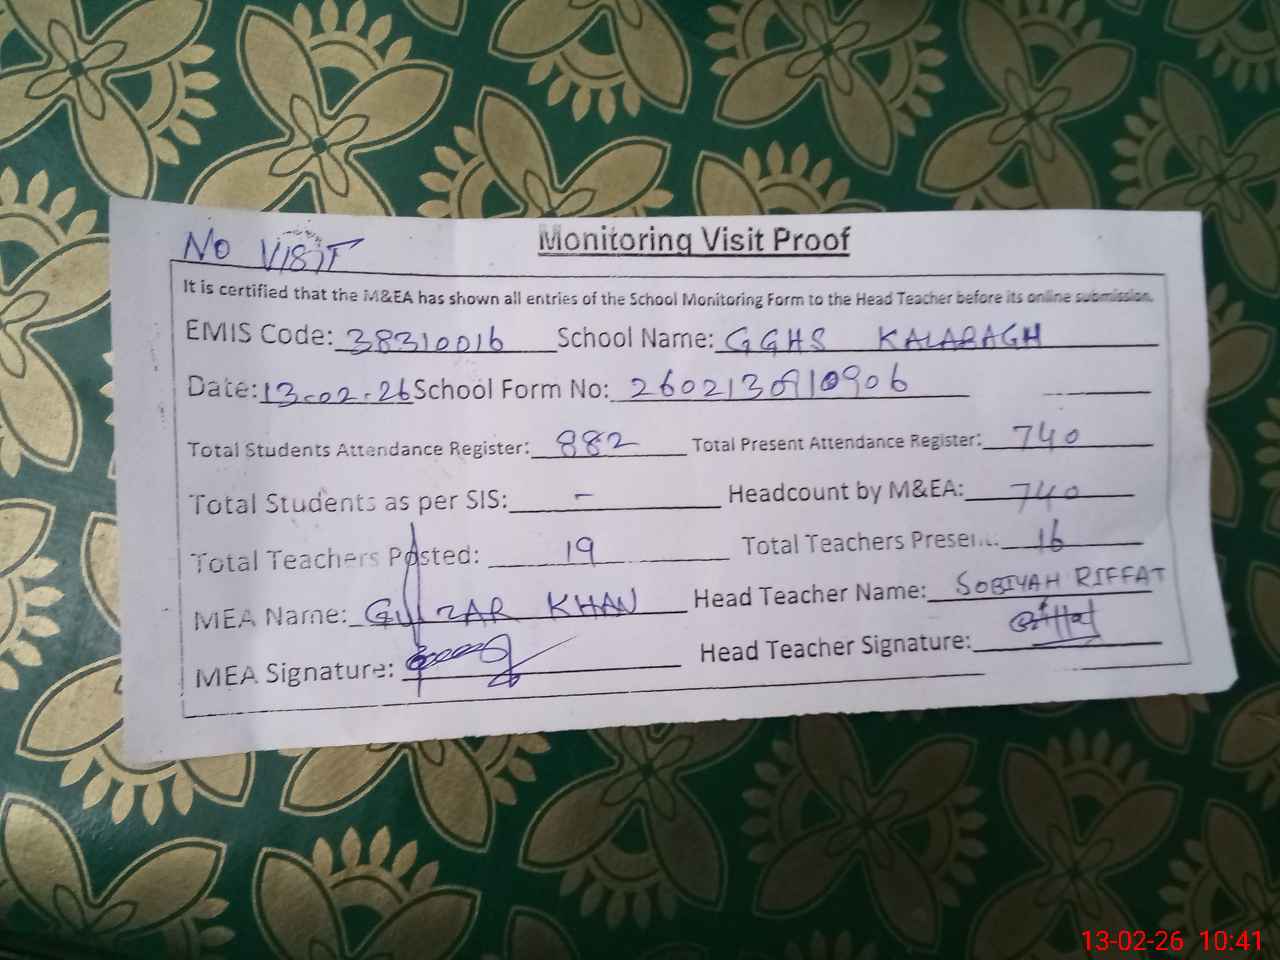 NO VISIT
Monitoring Visit Proof
It is certified that the M&EA has shown all entries of the School Monitoring Form to the Head Teacher before its online submission.
EMIS Code: 38310016 School Name: GGHS KALABAGH
Date: 13-02-26 School Form No: 2602130910906
Total Students Attendance Register: 882 Total Present Attendance Register: 740
Total Students as per SIS: - Headcount by M&EA: 740
Total Teachers Posted: 19 Total Teachers Present: 16
MEA Name: GULZAR KHAN Head Teacher Name: SOBIYAH RIFFAT
MEA Signature: Head Teacher Signature:
13-02-26 10:41